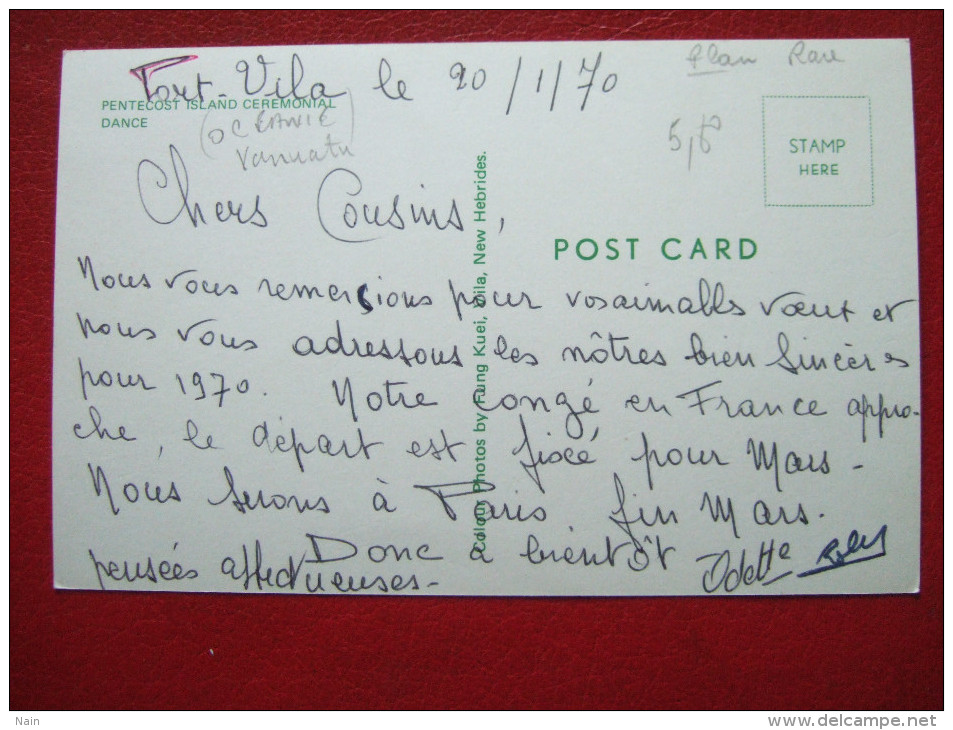 Port-Vila le 20/1/70
Plan Rare
PENTECOST ISLAND CEREMONIAL
DANCE
(OCÉANIE)
Vanuatu
STAMP
HERE
POST CARD
Colour Photos by Fung Kuei, Vila, New Hebrides.
Chers Cousins,
Nous vous remercions pour vos aimables vœux et
nous vous adressons les nôtres bien sincères
pour 1970. Notre congé en France appro-
che, le départ est fixé pour Mars -
Nous serons à Paris fin Mars.
Donc à bientôt
pensées affectueuses -
Odette
Nain
www.delcampe.net